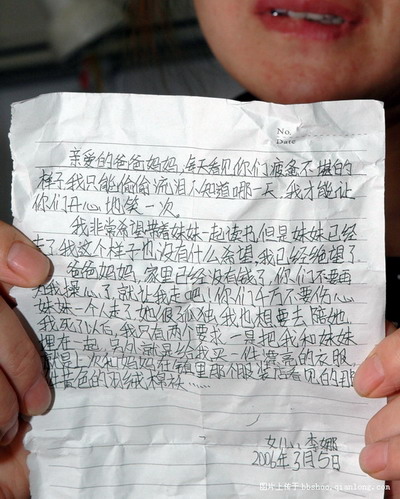 No.
Date
亲爱的爸爸妈妈,每天看见你们疲惫不堪的
样子,我只能偷偷流泪,不知道哪一天,我才能让
你们开心地笑一次。
我非常希望带着妹妹一起读书,但是妹妹已经
走了,我这个样子也没有什么希望,我已经绝望了。
爸爸妈妈,家里已经没有钱了,你们不要再
为我操心了,就让我走吧!你们千万不要伤心,
妹妹一个人走了,她很孤独,我也想要去陪她。
我死了以后,我只有两个要求,一是把我和妹妹
埋在一起,另外就是给我买一件漂亮的衣服,
就是上次和妈妈在镇里那个服装店看见的那
黄色的羽绒棉袄……
女儿:李娜
2006年3月5日
图片上传于:bbshoo.qianlong.com